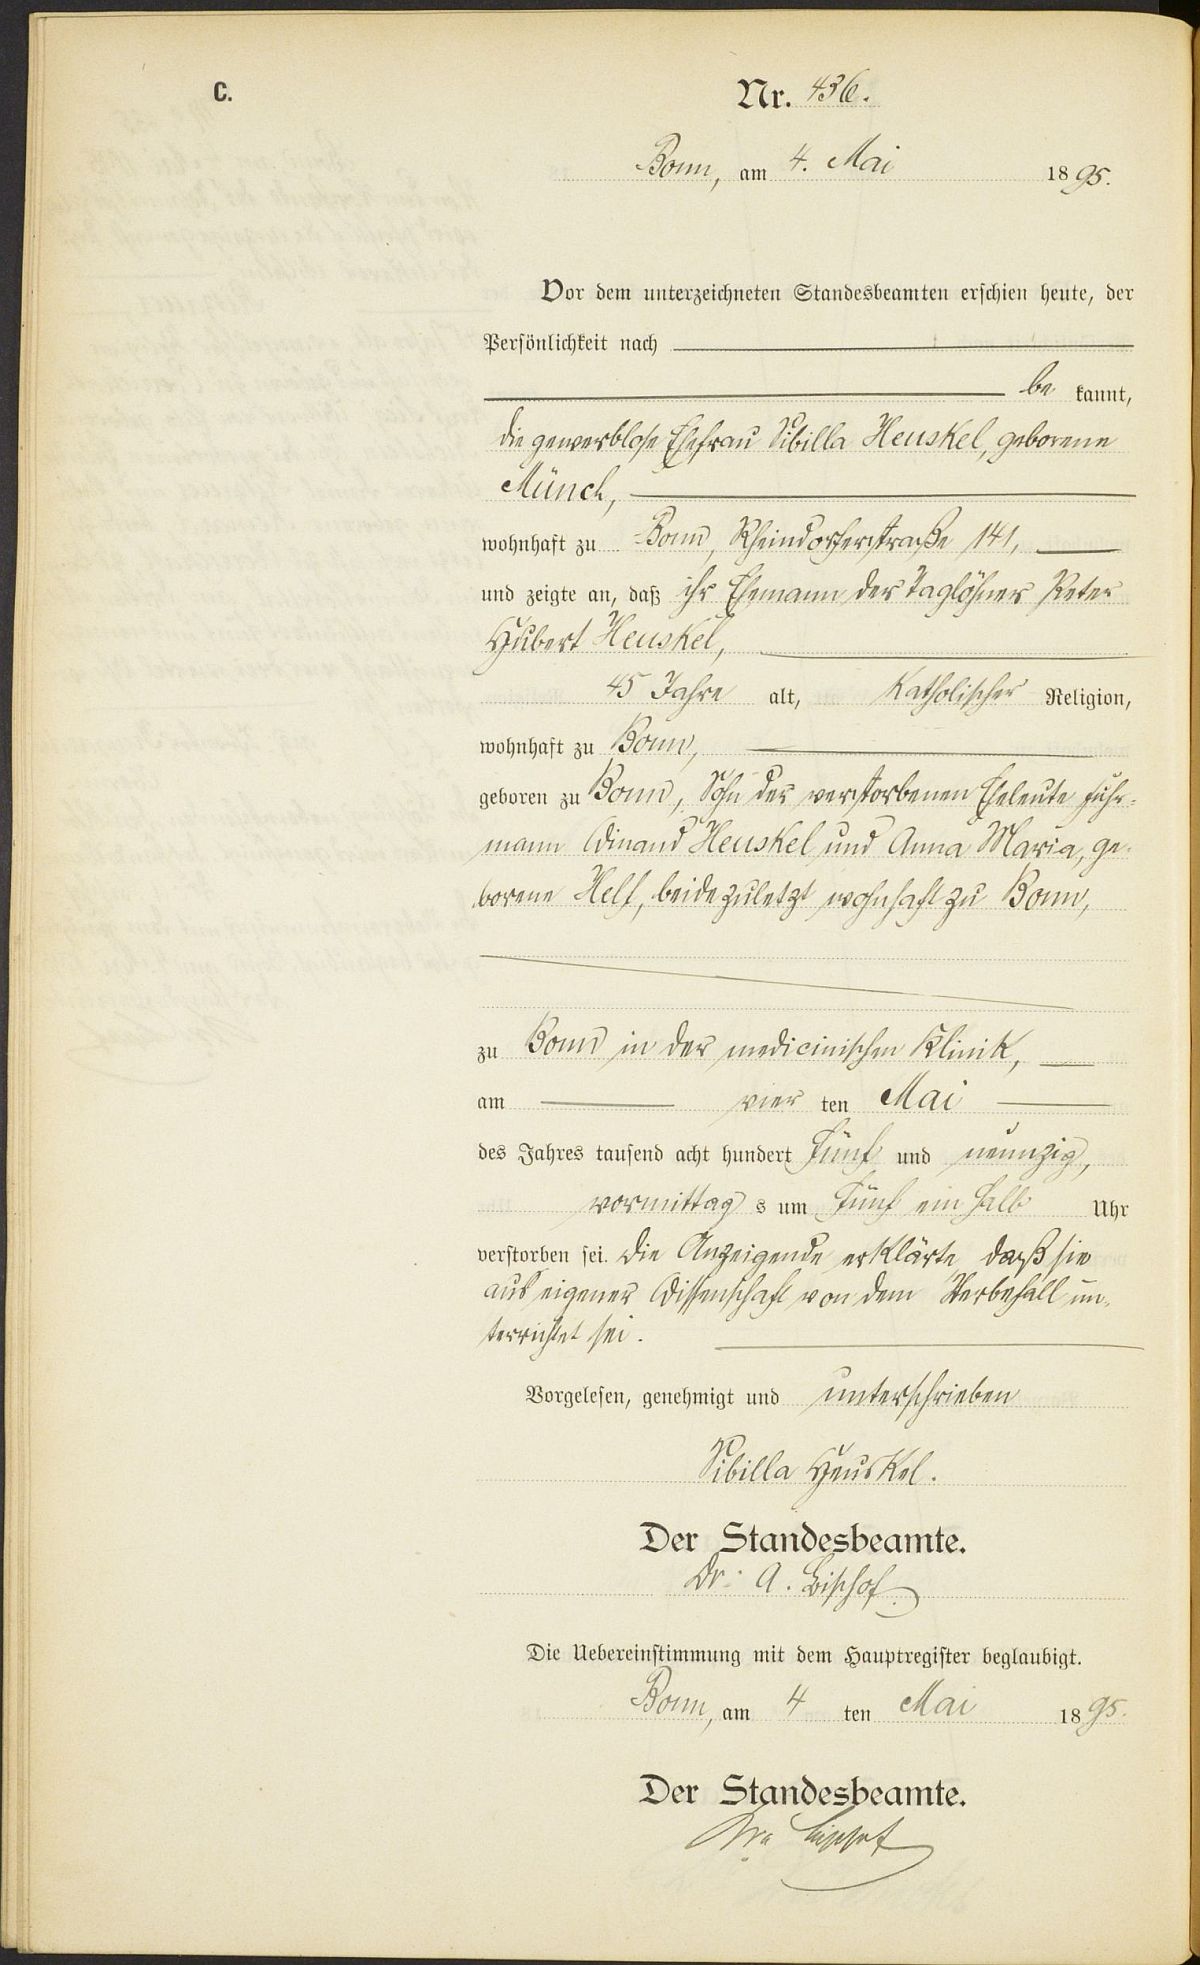 C.
Nr. 436.
Bonn, am 4. Mai 1895.
Vor dem unterzeichneten Standesbeamten erschien heute, der
Persönlichkeit nach
be kannt,
die gewerblose Ehefrau Sibilla Heuskel, geborene
Münch,
wohnhaft zu Bonn, Rheindorferstraße 141,
und zeigte an, daß ihr Ehemann der Taglöhner Peter
Hubert Heuskel,
45 Jahre alt, Katholischer Religion,
wohnhaft zu Bonn,
geboren zu Bonn, Sohn der verstorbenen Eheleute Fuhr-
mann Heuskel und Anna Maria, ge-
borene Helf, beide zuletzt wohnhaft zu Bonn,
zu Bonn in der medicinischen Klinik,
am vier ten Mai
des Jahres tausend acht hundert fünf und neunzig,
vormittag s um fünf ein halb Uhr
verstorben sei. Die Anzeigende erklärte, daß sie
aus eigener Wissenschaft von dem Sterbefall un-
terrichtet sei.
Vorgelesen, genehmigt und unterschrieben
Sibilla Heuskel.
Der Standesbeamte.
Dr. A. Bischof.
Die Uebereinstimmung mit dem Hauptregister beglaubigt.
Bonn, am 4 ten Mai 1895.
Der Standesbeamte.
Bischof